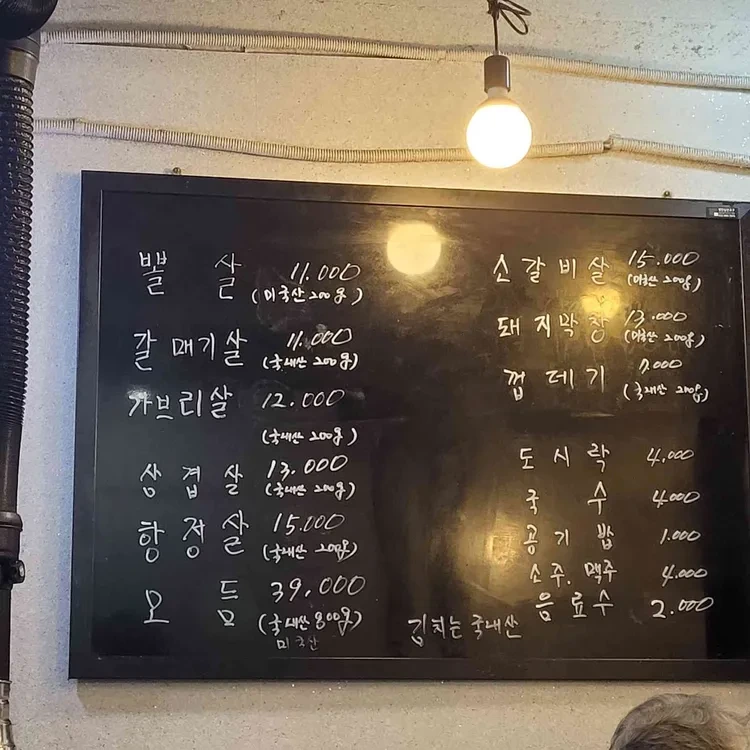 뽈 살 11.000
(미국산 200g)
갈매기살 11.000
(국내산 200g)
가브리살 12.000
(국내산 200g)
삼겹살 13.000
(국내산 200g)
항정살 15.000
(국내산 200g)
모 듬 39.000
(국내산 800g)
미국산
소갈비살 15.000
(미국산 200g)
돼지막창 13.000
(미국산 200g)
껍데기 7.000
(국내산 200g)
도시락 4.000
국 수 4.000
공기밥 1.000
소주. 맥주 4.000
음료수 2.000
김치는 국내산